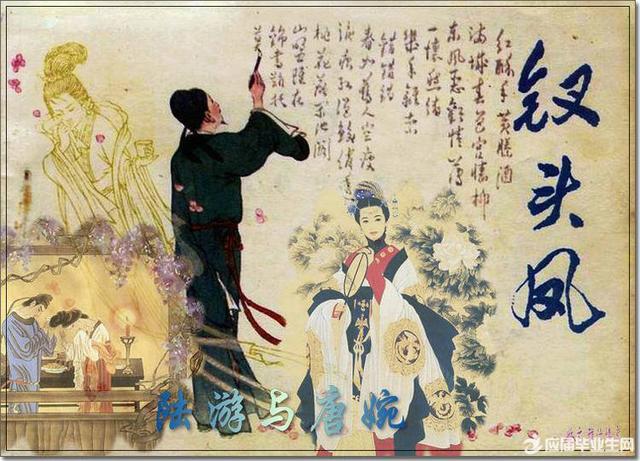 钗头凤
红酥手黄縢酒
满城春色宫墙柳
东风恶歡情薄
一怀愁绪
几年離索
错错错
春如舊人空瘦
泪痕红浥鲛绡透
桃花落闲池阁
山盟雖在
锦書難托
莫
陆游与唐婉
应届毕业生网